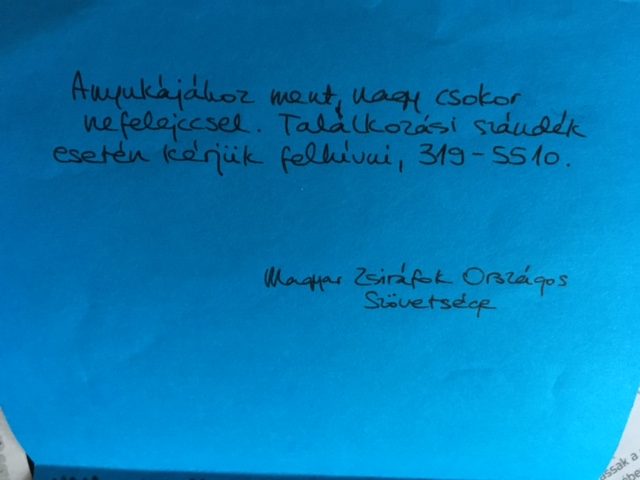 Anyukájához ment, nagy csokor
nefelejccsel. Találkozási szándék
esetén kérjük felhívni, 319-5510.
Magyar Zsiráfok Országos
Szövetsége
assak a